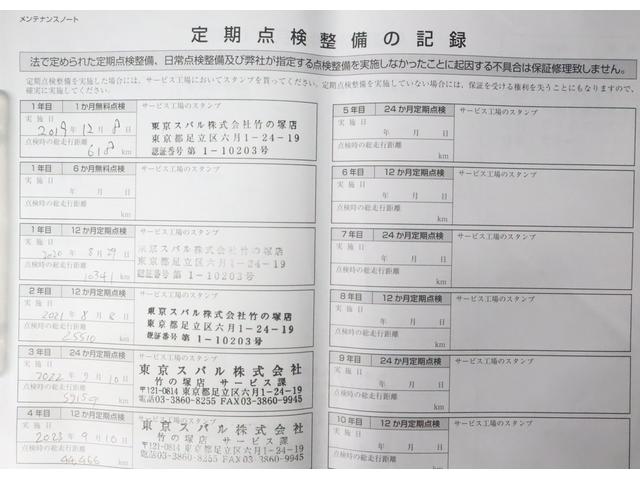 メンテナンスノート
定期点検整備の記録
法で定められた定期点検整備、日常点検整備及び弊社が指定する点検整備を実施しなかったことに起因する不具合は保証修理致しません。
定期点検整備を実施した場合には、サービス工場においてスタンプを貰ってください。定期点検整備を実施していない場合には、保証を受ける権利を失うこともなりますので、
確実に実施してください。
1年目 1か月無料点検 サービス工場のスタンプ
実施日 2019年12月8日
点検時の総走行距離
618 km
東京スバル株式会社竹の塚店
東京都足立区六月1-24-19
認証番号 第1-10203号
1年目 6か月無料点検 サービス工場のスタンプ
実施日
年 月 日
点検時の総走行距離
km
1年目 12か月定期点検 サービス工場のスタンプ
実施日
2020年8月29日
点検時の総走行距離
10341 km
東京スバル株式会社竹の塚店
東京都足立区六月1-24-19
認証番号 第1-10203号
2年目 12か月定期点検 サービス工場のスタンプ
実施日
2021年8月 日
点検時の総走行距離
25510 km
東京スバル株式会社竹の塚店
東京都足立区六月1-24-19
認証番号 第1-10203号
3年目 24か月定期点検 サービス工場のスタンプ
実施日
2022年9月10日
点検時の総走行距離
km
東京スバル株式会社
竹の塚店 サービス課
〒121-0814 東京都足立区六月1-24-19
電話03-3860-8255 FAX03-3860-9945
4年目 12か月定期点検 サービス工場のスタンプ
実施日
2023年9月10日
点検時の総走行距離
44,466 km
東京スバル株式会社
竹の塚店 サービス課
〒121-0814 東京都足立区六月1-24-19
電話03-3860-8255 FAX03-3860-9945
5年目 24か月定期点検 サービス工場のスタンプ
実施日
年 月 日
点検時の総走行距離
km
6年目 12か月定期点検 サービス工場のスタンプ
実施日
年 月 日
点検時の総走行距離
km
7年目 24か月定期点検 サービス工場のスタンプ
実施日
年 月 日
点検時の総走行距離
km
8年目 12か月定期点検 サービス工場のスタンプ
実施日
年 月 日
点検時の総走行距離
km
9年目 24か月定期点検 サービス工場のスタンプ
実施日
年 月 日
点検時の総走行距離
km
10年目 12か月定期点検 サービス工場のスタンプ
実施日
年 月 日
点検時の総走行距離
km